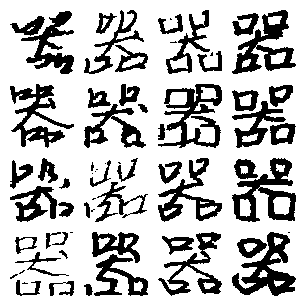 器器器器
器器器器
器器器器
器器器器